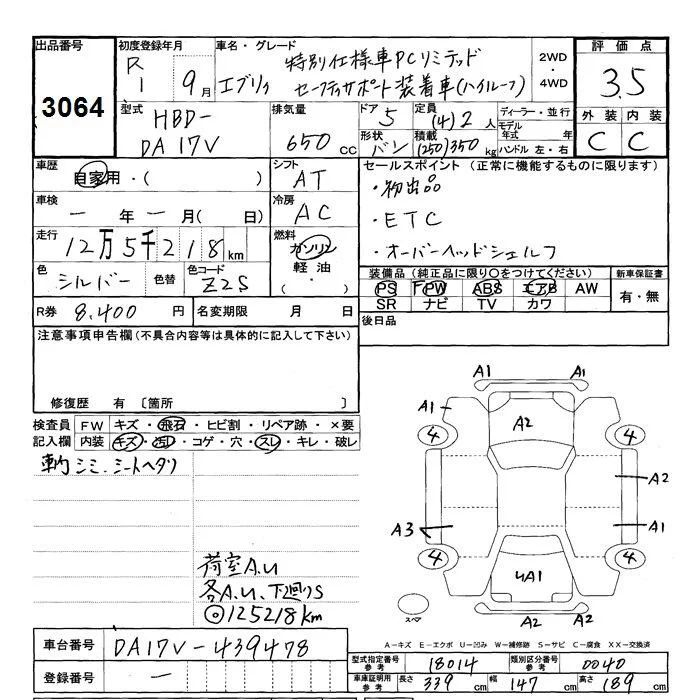 出品番号 3064
初度登録年月 R1 9月
車名・グレード エブリィ 特別仕様車PCリミテッド
セーフティサポート装着車(ハイルーフ)
2WD・4WD
評価点 3.5
外装 C 内装 C
型式 HBD-DA17V
排気量 650cc
ドア 5
定員 (4)2人
形状 バン
積載 (250)350kg
ディーラー・並行
モデル年式 年
ハンドル 左・右
車歴 自家用・( )
シフト AT
車検 ー年ー月( 日)
冷房 AC
走行 12万5千218km
燃料 ガソリン 軽油・( ・ )
色 シルバー 色替
色コード Z2S
R券 8,400円
名変期限 月 日
セールスポイント(正常に機能するものに限ります)
・初出品
・ETC
・オーバーヘッドシェルフ
装備品(純正品に限り○をつけてください)
PS PW ABS エアB AW
SR ナビ TV カワ
新車保証書 有・無
後日品
注意事項申告欄(不具合内容等は具体的に記入して下さい)
修復歴 有 〔箇所 〕
検査員記入欄
FW キズ・飛石・ヒビ割・リペア跡・×要
内装 キズ・汚レ・コゲ・穴・スレ・キレ・破レ
車内シミ・シートヘタリ
荷室A.U
各A.U、下廻りS
◎125218km
A1 A1
A1 A2
4 4
A2
A3 A1
4 4
4A1
スペア A2 A2
A-キズ E-エクボ U-凹み W-補修跡 S-サビ C-腐食 XX-交換済
車台番号 DA17V-439478
登録番号 ー
型式指定番号参考 18014
類別区分番号参考 0040
車庫証明用参考 長さ 339cm 幅 147cm 高さ 189cm